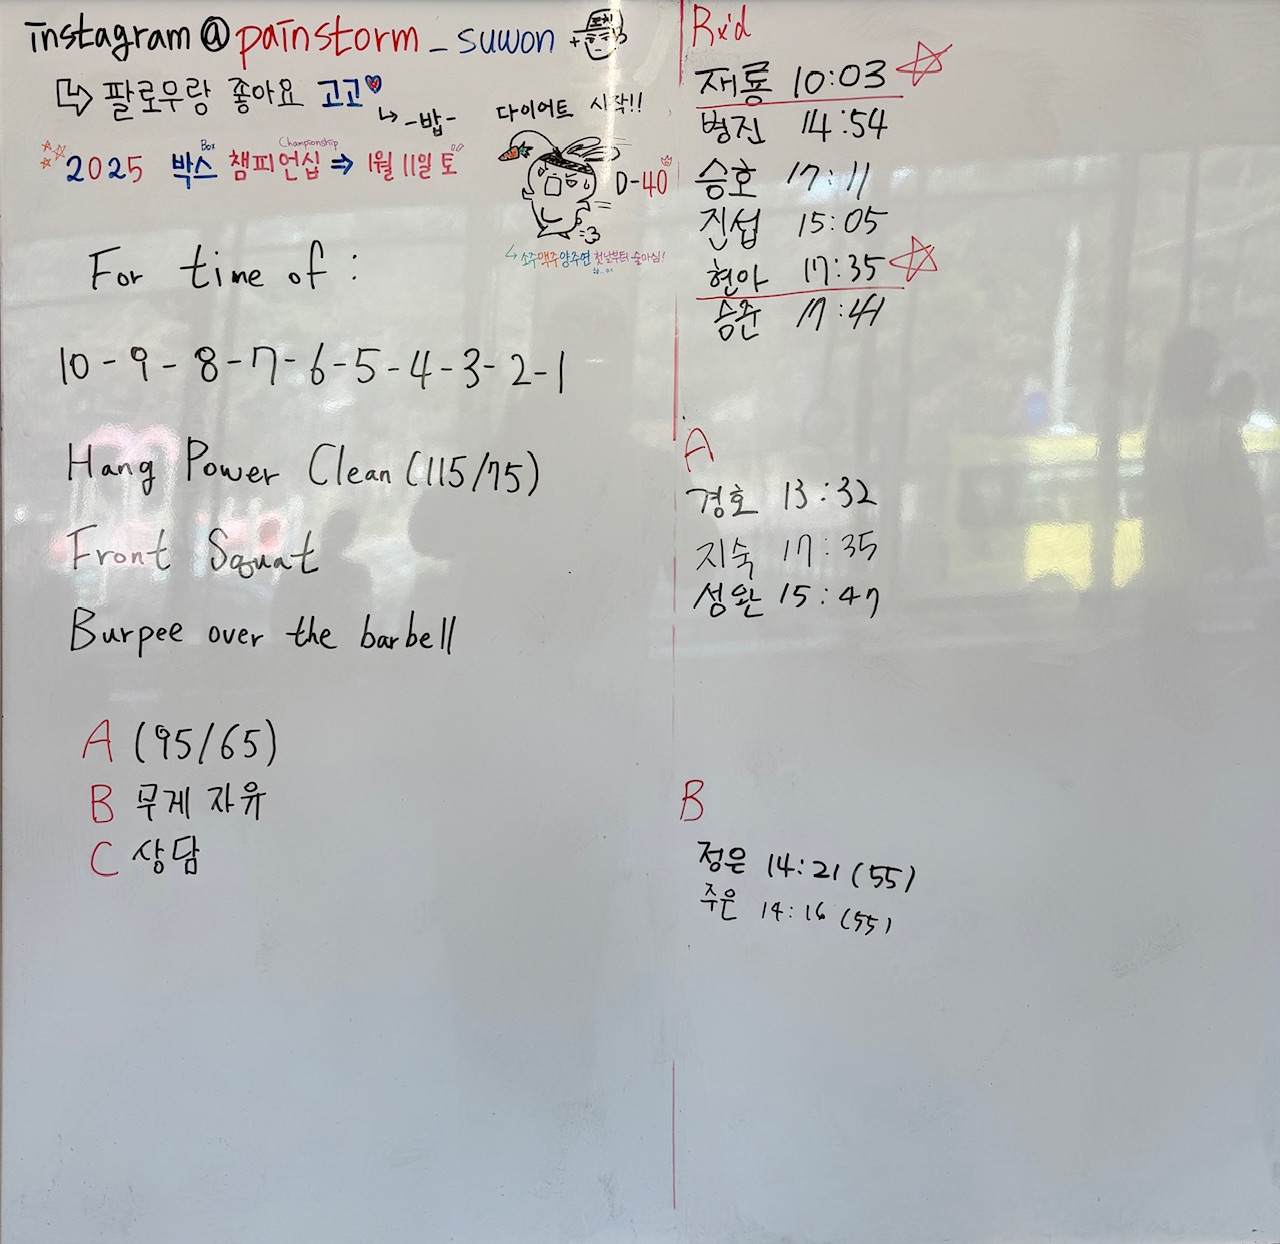 instagram@painstorm_suwon
팔로우랑 좋아요 고고
-밥-
Box Championship
2025 박스 챔피언십 ⇒ 1월 11일 토
다이어트 시작!!
D-40
소주맥주양주연 첫날부터 술마심!
For time of :
10-9-8-7-6-5-4-3-2-1
Hang Power Clean (115/75)
Front Squat
Burpee over the barbell
A (95/65)
B 무게 자유
C 상담
Rx'd
재룡 10:03
병진 14:54
승호 17:11
진섭 15:05
현아 17:35
승준 17:41
A
경호 13:32
지숙 17:35
성완 15:47
B
정은 14:21 (55)
주은 14:16 (55)